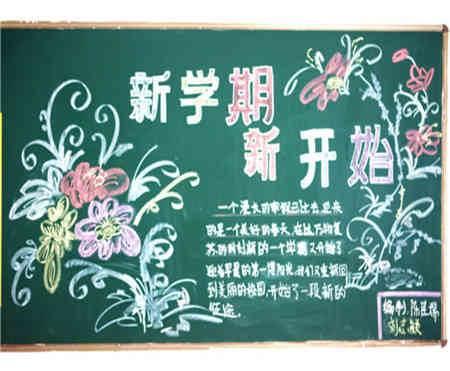 新学期
新开始
一个漫长的寒假已过去,迎来
的是一个美好的春天,在这万物复
苏的时刻新的一个学期又开始了
迎着早晨的第一缕阳光,我们又来到
到美丽的校园,开始了一段新的
征途。